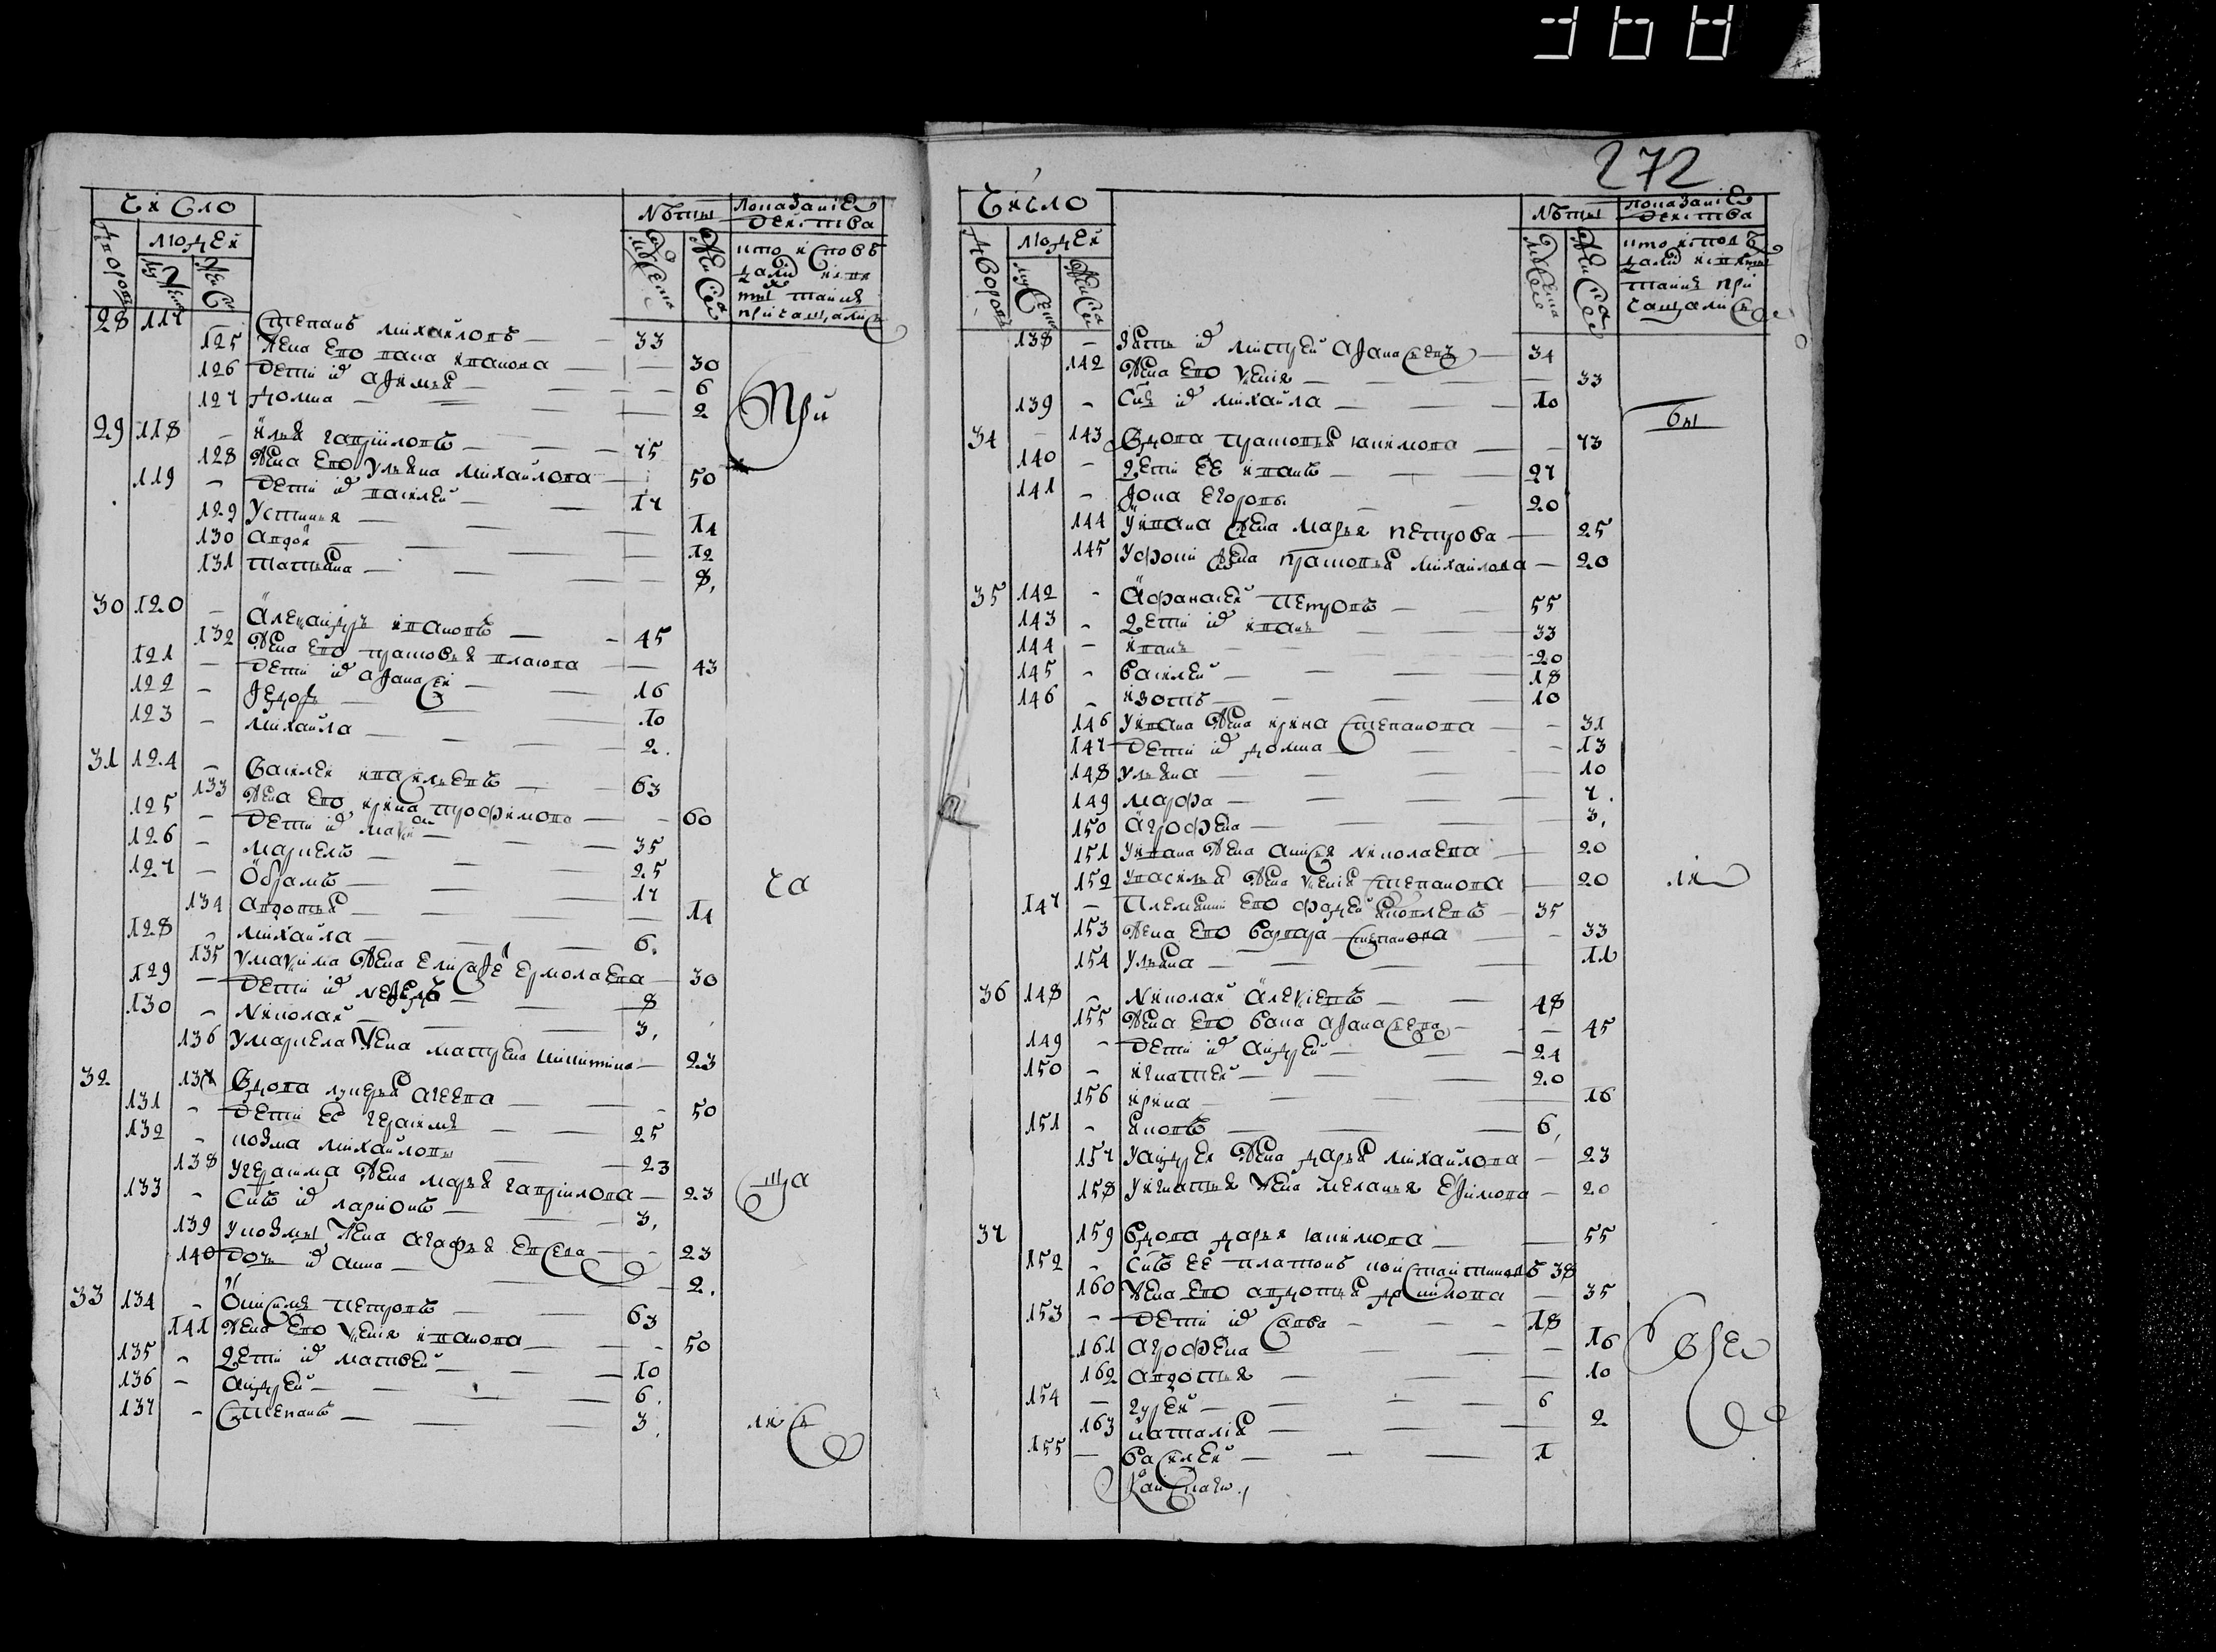 368
272
Число
Лѣты
показаніе
действа
Дворовъ
людей
мужеска
женска
мужеска
женска
кто исповѣ
дались и свя
ты тайнъ
причащались
28 117 Степанъ Михайловъ 33
125 Жена его пана иванова 30
126 Дети их Афимья 6
127 Домна 2
При
29 118 Илья гаврiиловъ 45
128 Жена его Ульяна Михайлова 50
119 Дети их василей 17
129 Устинья 14
130 Авдо 12
131 татьяна 8
30 120 Александръ ивановъ 45
132 Жена его праковья власова 43
121 Дети их афанасей 16
122 федоръ 10
123 михайла 2
31 124 Василей ивасильевъ 63
133 Жена его ирина трофимова 60
125 Дети их макси 35
126 маркелъ 25
127 Обрамъ 17
ча
134 авдотья 14
128 михайла 6
135 Умаксима Жена елисафе ермолаева 30
129 Дети их нефедъ 8
130 Николай 3
136 Умаркела Жена матрена никитина 23
32 137 Вдова лукерья агеева 50
131 Дети ее герасимъ 25
132 козма михайловы 23
138 Угерасима Жена марья гаврiилова 23
133 Снъ их ларионъ 3
ща
139 Укозмы Жена агафья евсева 23
140 Дочь их анна 2
33 134 Онисимъ петровъ 63
141 Жена его ксенiя иванова 50
135 Дети их матвей 10
136 андрей 6
137 Степанъ 3
лис
Число
Лѣты
показаніе
действа
Дворовъ
людей
мужеска
женска
мужеска
женска
кто исповѣ
дались и святы
тайнъ при
чащались
138 Зять их дмитрей афанасьевъ 34
142 Жена его ксенiя 33
139 Снъ их михайла 10
бы
34 143 Вдова праковья якимова 73
140 Дети ее иванъ 27
141 фона егоровы 20
144 Уивана Жена марья петрова 25
145 Уфоки Жена праковья михайлова 20
35 142 Афанасей петровъ 55
143 Дети их иванъ 33
144 иванъ 20
145 василей 18
146 изотъ 10
146 Уивана Жена ирина степанова 31
147 Дети их домна 13
148 ульяна 10
149 марфа 7
150 Агрофена 3
151 Уивана Жена анисья николаева 20
152 Увасилья Жена ксенiя степанова 20
ли
147 Племянникъ его фадей яковлевъ 35
153 Жена его варвара степанова 33
154 ульяна 11
36 148 Николай Алексiевъ 48
155 Жена его васа афанасьева 45
149 Дети их андрей 24
150 игнатей 20
156 ирина 16
151 яковъ 6
157 Уандрея Жена дарья михайлова 23
158 Уигнатья Жена меланья ефимова 20
37 159 Вдова дарья якимова 55
152 Снъ ее платонъ константиновъ 38
160 Жена его авдотья данилова 35
153 Дети их сава 18
161 агрофена 16
162 авдотья 10
154 гурей 6
163 наталiя 2
155 василей 1
все